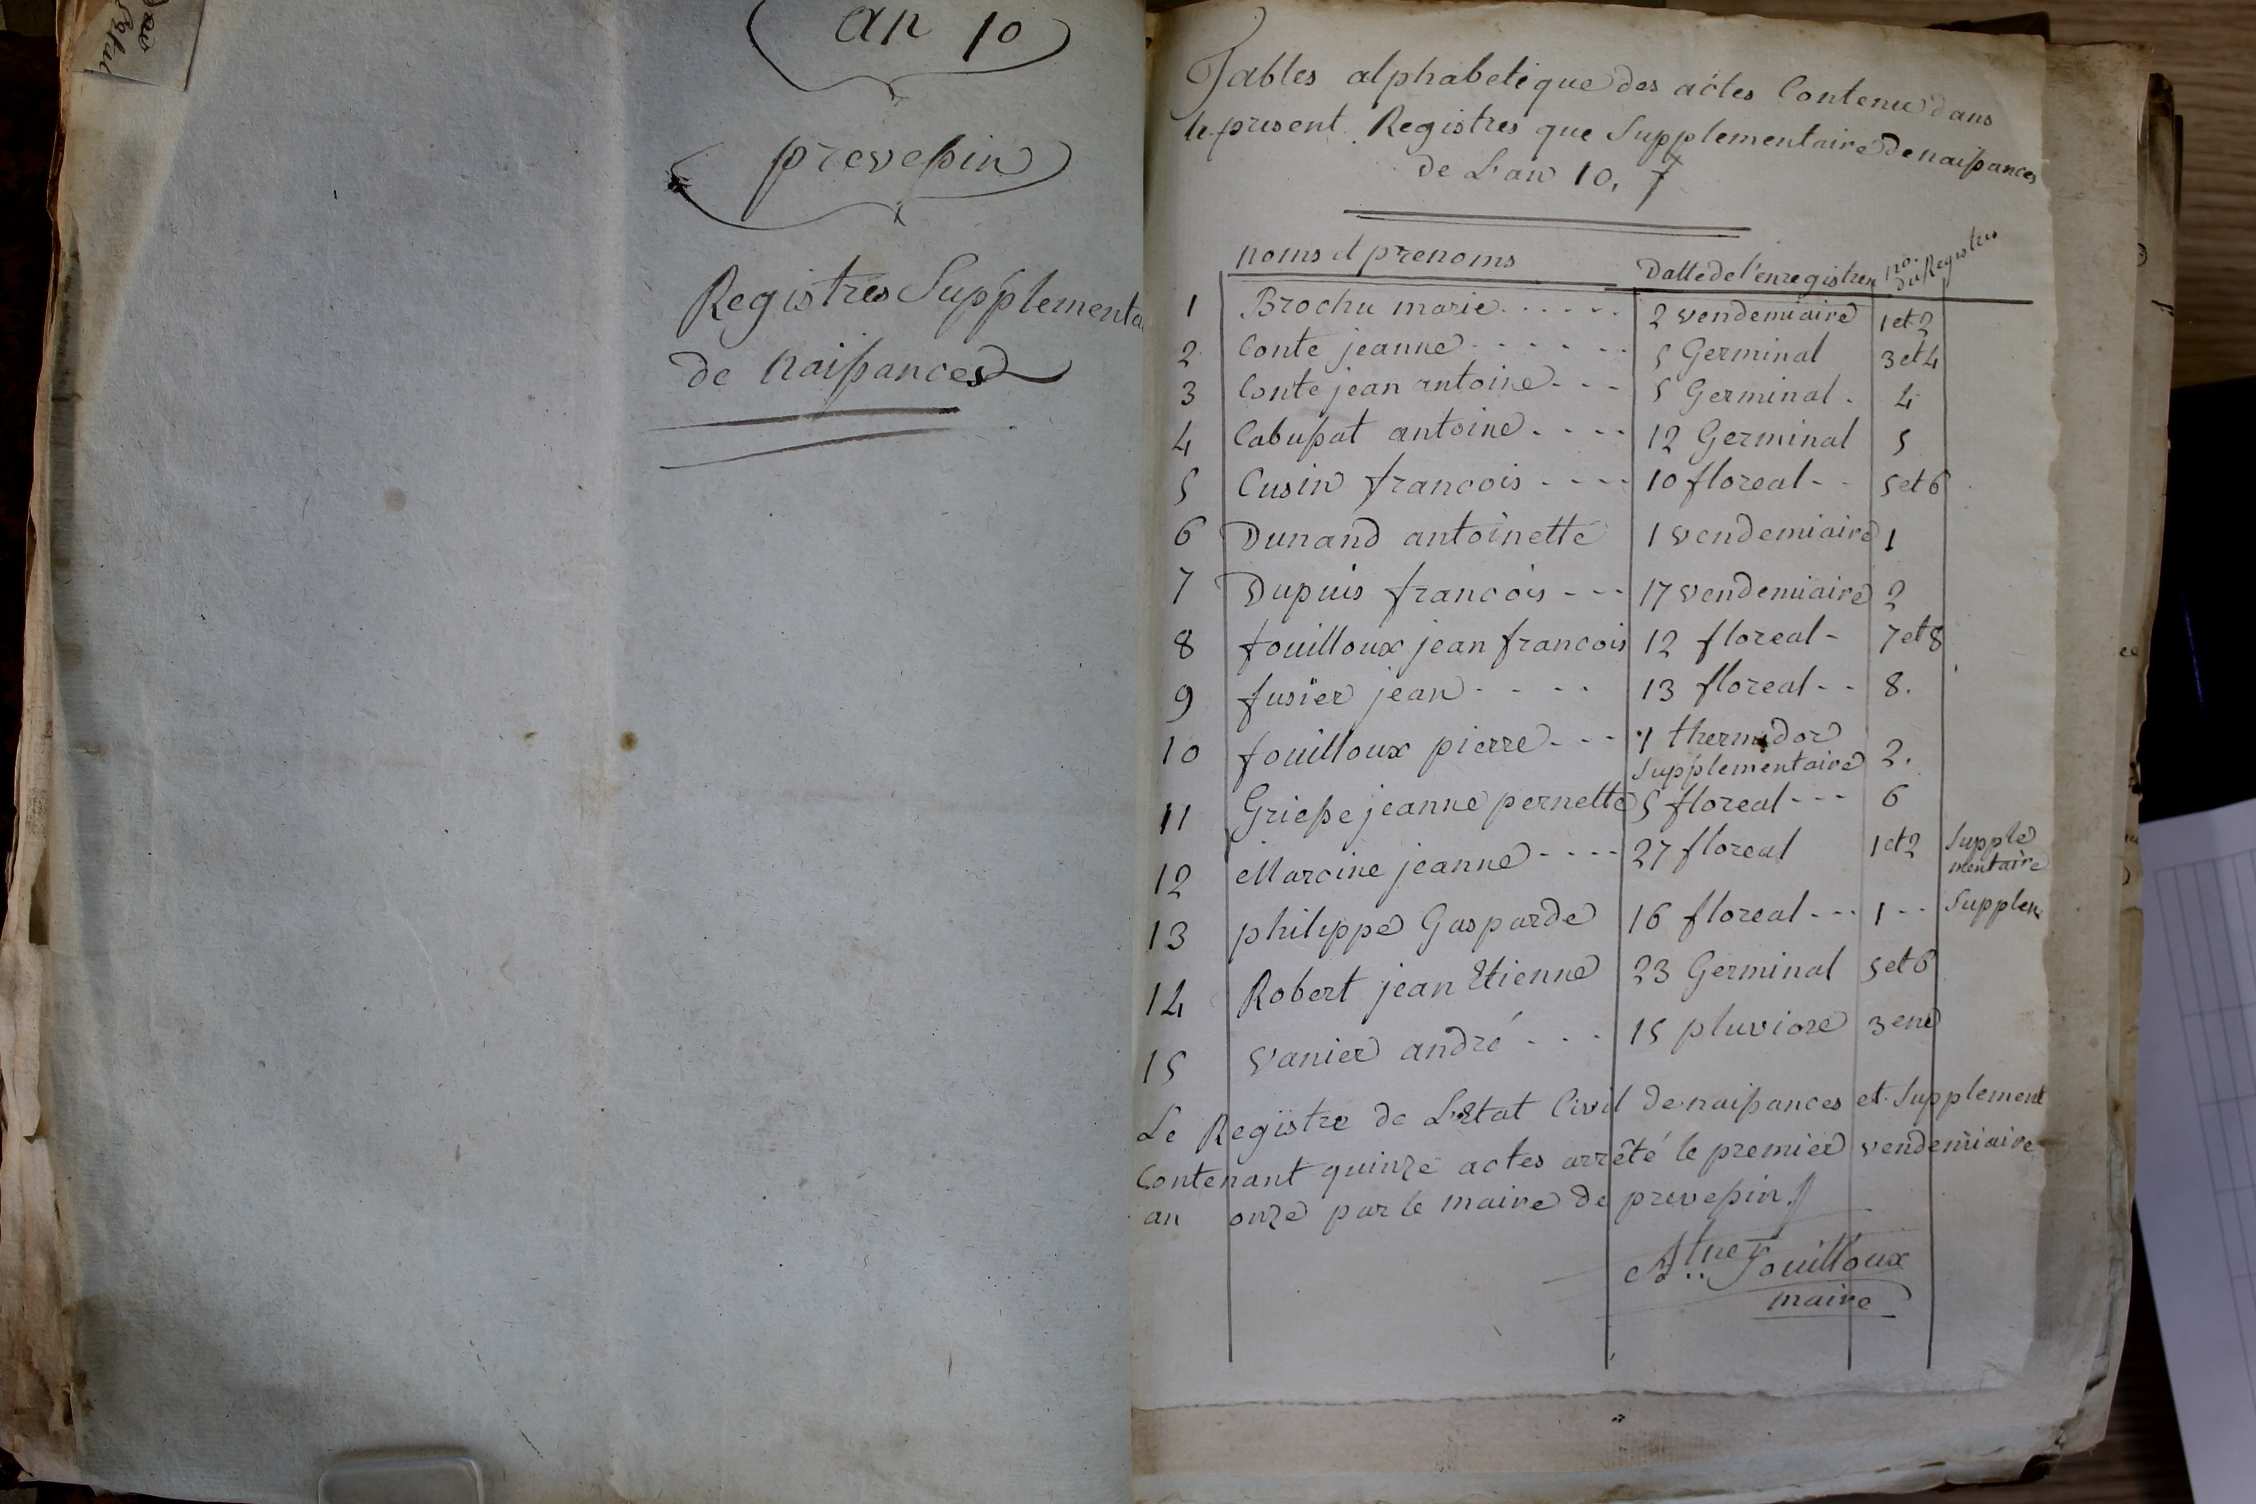 an 10
prevessin
Registres Supplementa
de naissances
Tables alphabetique des actes Contenu dans
le present Registres que Supplementaire de naissances
de L'an 10.
noms et prenoms Datte de l'enregistrem no. du Registres
1 Brochu marie 2 vendemiaire 1 et 2
2 Conte jeanne 5 Germinal 3 et 4
3 Conte jean antoine 5 Germinal 4
4 Cabussat antoine 12 Germinal 5
5 Cusin francois 10 floreal 5 et 6
6 Dunand antoinette 1 vendemiaire 1
7 Dupuis francois 17 vendemiaire 2
8 fouilloux jean francois 12 floreal 7 et 8
9 fusier jean 13 floreal 8.
10 fouilloux pierre 1 thermidor 2.
Supplementaire
11 Griesse jeanne pernette 5 floreal 6
12 Marcine jeanne 27 floreal 1 et 2 Supple
mentaire
13 philippe Gasparde 16 floreal 1 Supplem
14 Robert jean Etienne 23 Germinal 5 et 6
15 Vanier andré 15 pluviose 3 eme
Le Registre de L'Etat Civil de naissances et Supplement
Contenant quinze actes arrêté le premier vendemiaire
an onze par le maire de prevessin
Fouilloux
maire